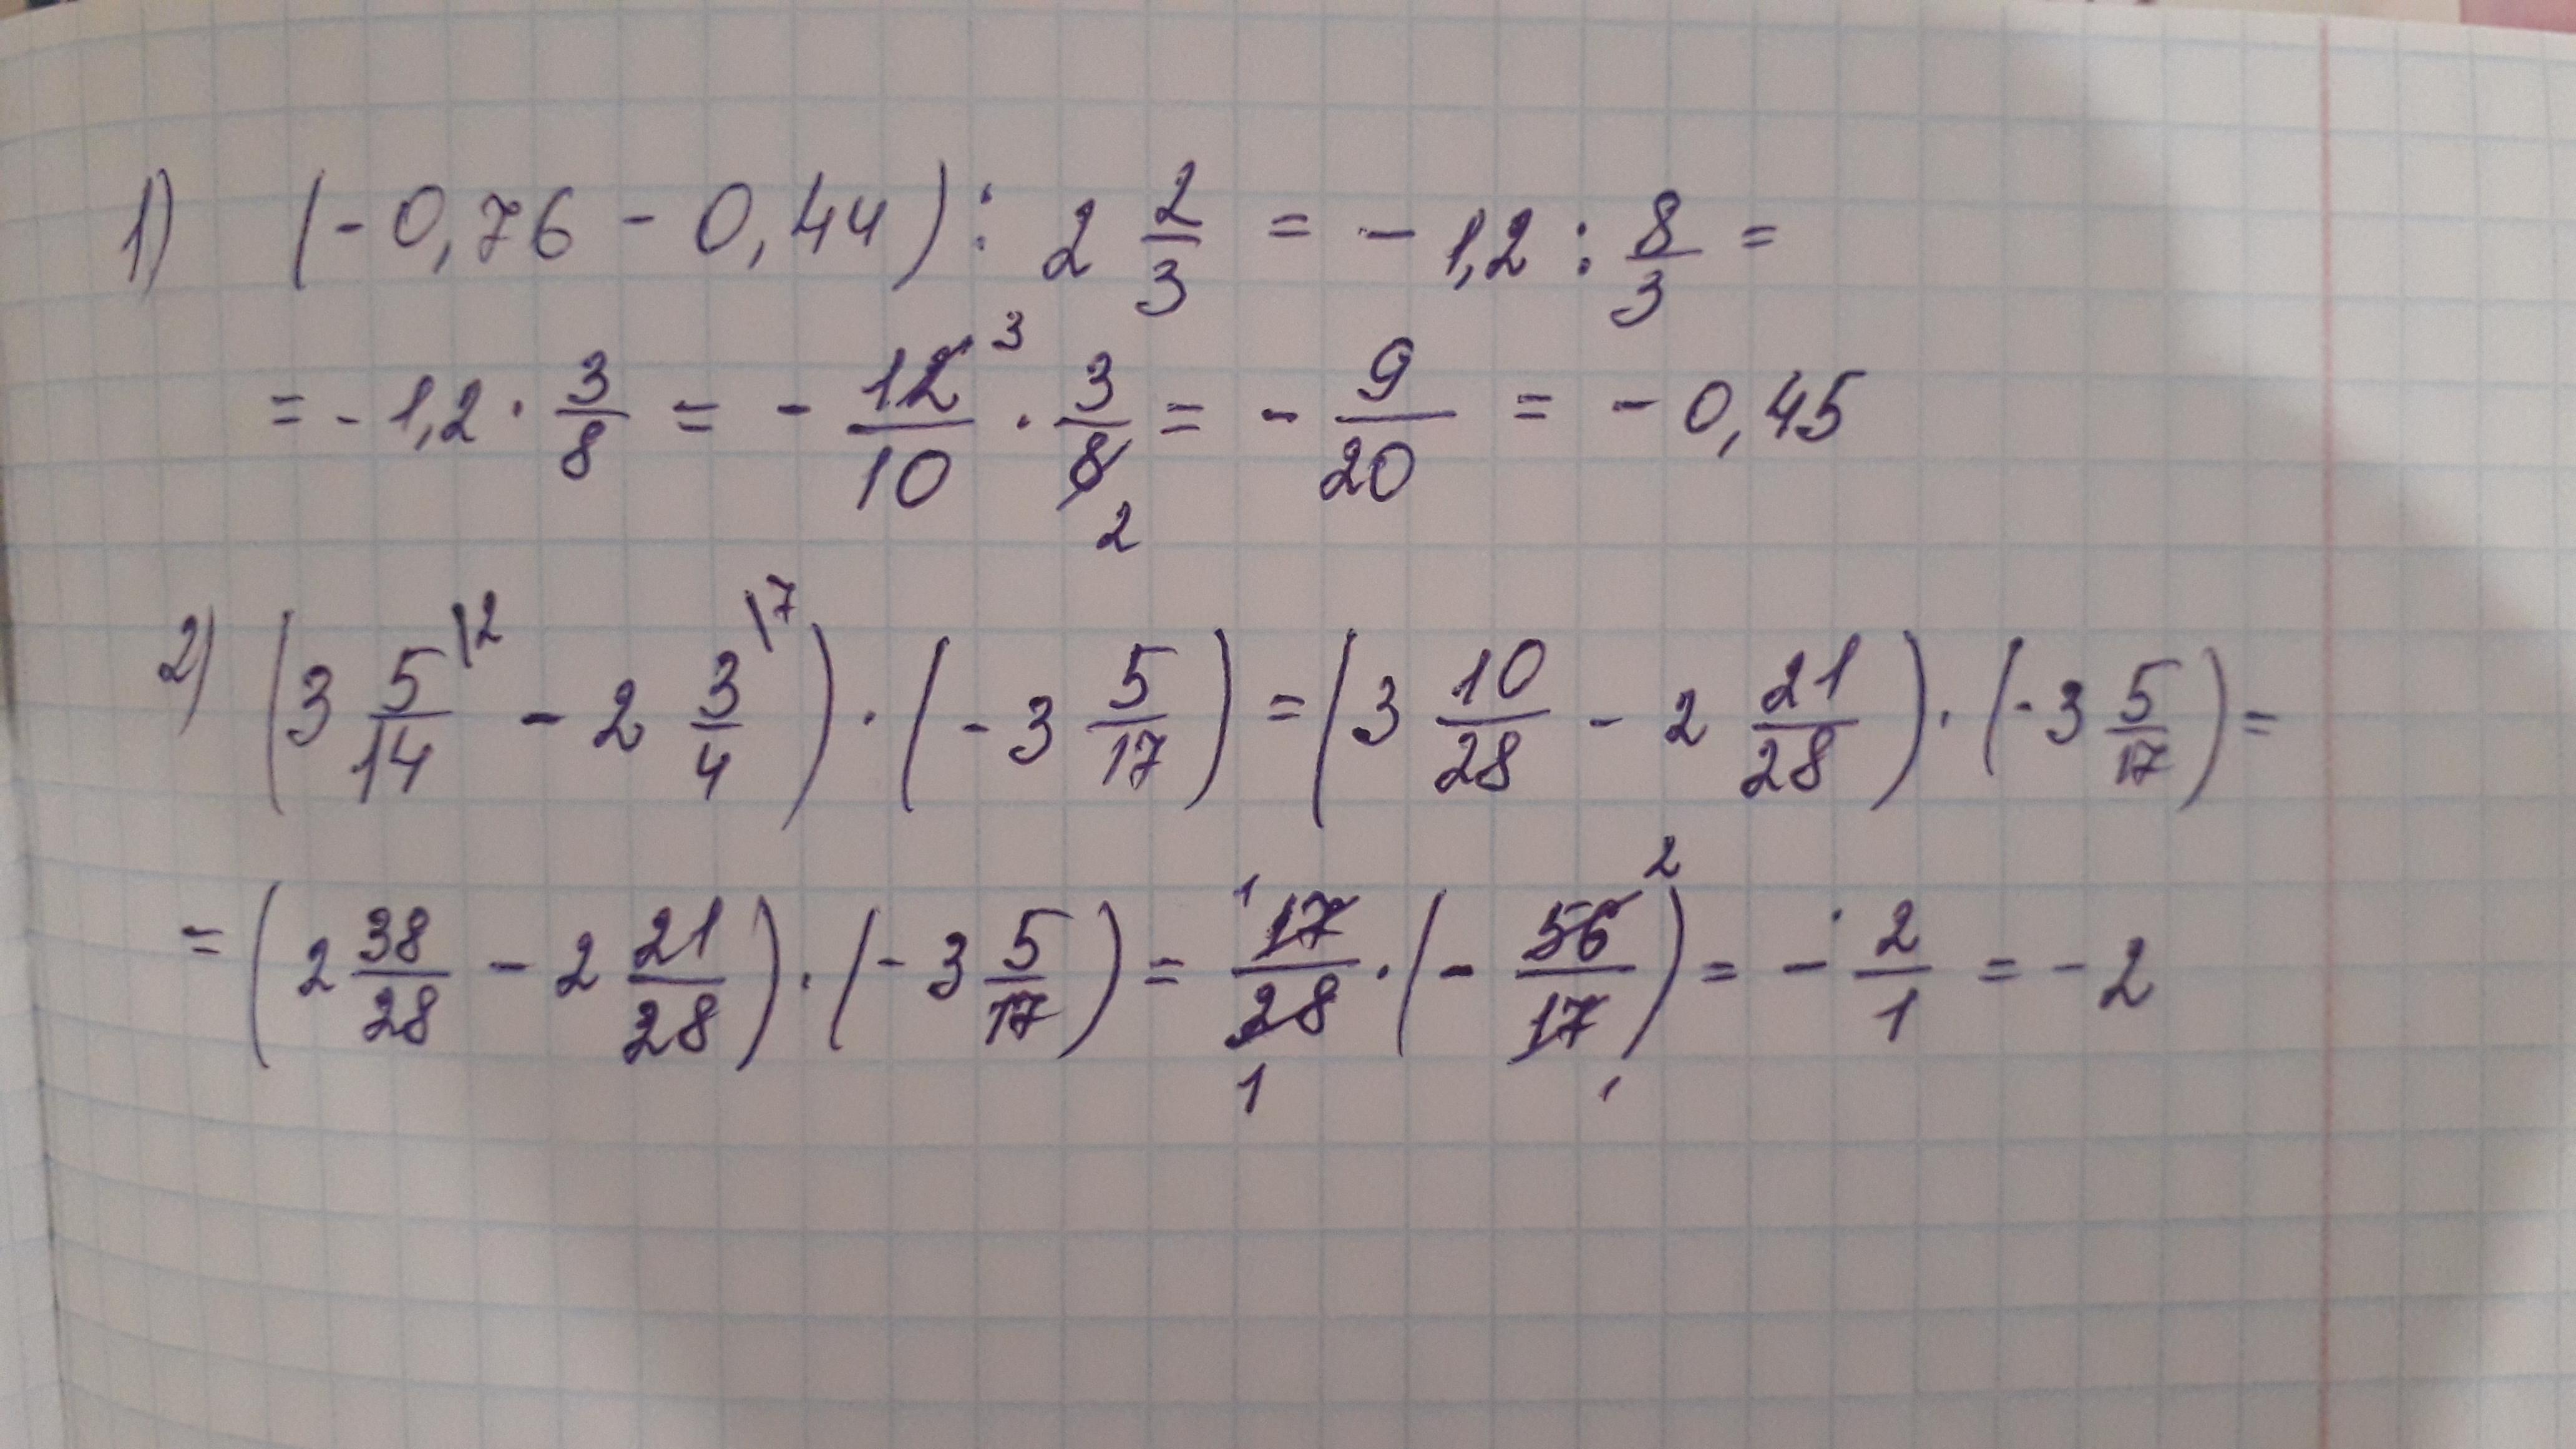 1) (-0,76 - 0,44) : 2 2/3 = - 1,2 : 8/3 =
= - 1,2 · 3/8 = - 12/10 3 · 3/8 2 = - 9/20 = - 0,45
2) (3 5/14 \2 - 2 3/4 \7) · (-3 5/17) = (3 10/28 - 2 21/28) · (-3 5/17) =
= (2 38/28 - 2 21/28) · (-3 5/17) = 1 17/28 1 · (- 56/17 2 1) = - 2/1 = - 2